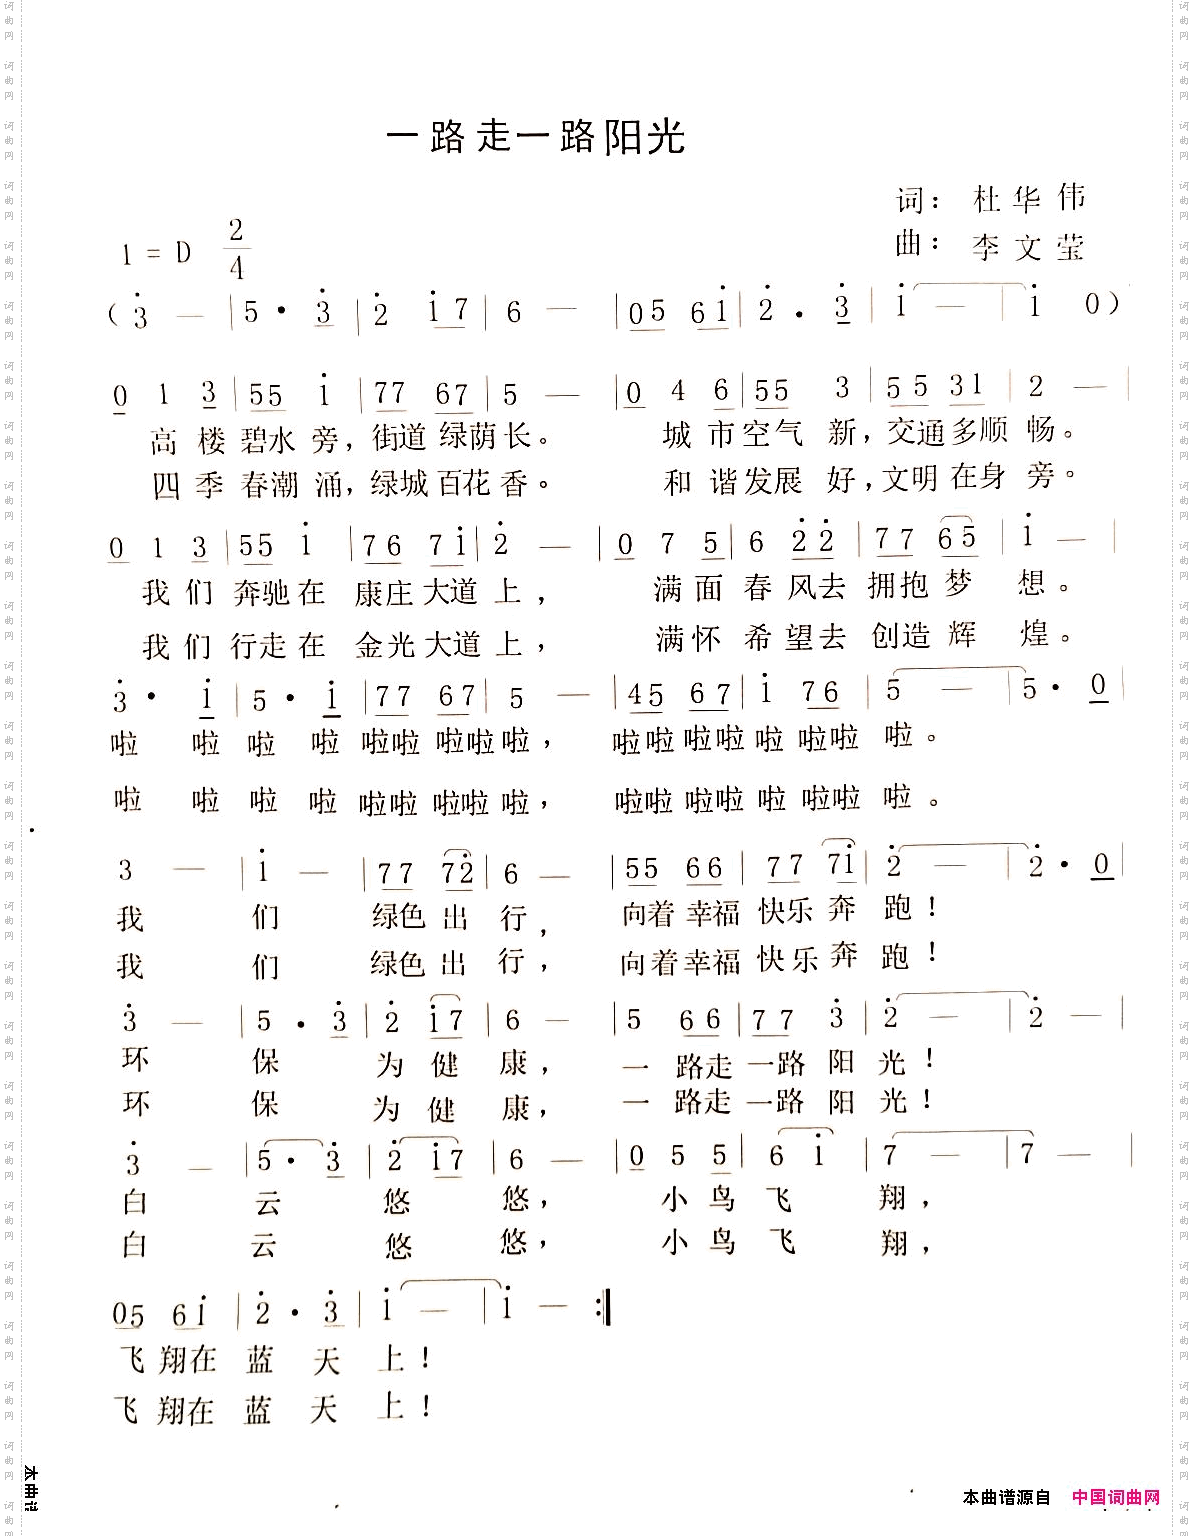 一路走一路阳光
词：杜华伟
1=D 2/4 曲：李文莹
（3̇ — | 5· 3̇ | 2̇ i̇7 | 6 — | 05 6i̇ | 2̇· 3̇ | i̇ — | i̇ 0）
0 1 3 | 55 i̇ | 77 67 | 5 — | 0 4 6 | 55 3 | 55 31 | 2 — |
高楼碧水旁，街道绿荫长。 城市空气新，交通多顺畅。
四季春潮涌，绿城百花香。 和谐发展好，文明在身旁。
0 1 3 | 55 i̇ | 76 7i̇ | 2̇ — | 0 7 5 | 6 2̇2̇ | 77 65 | i̇ — |
我们奔驰在康庄大道上， 满面春风去拥抱梦想。
我们行走在金光大道上， 满怀希望去创造辉煌。
3̇· i̇ | 5· i̇ | 77 67 | 5 — | 45 67 | i̇ 76 | 5 — | 5· 0 |
啦啦啦啦啦啦啦啦啦， 啦啦啦啦啦啦啦啦。
啦啦啦啦啦啦啦啦啦， 啦啦啦啦啦啦啦啦。
3 — | i̇ — | 77 72̇ | 6 — | 55 66 | 77 7i̇ | 2̇ — | 2̇· 0 |
我们绿色出行， 向着幸福快乐奔跑！
我们绿色出行， 向着幸福快乐奔跑！
3̇ — | 5· 3̇ | 2̇ i̇7 | 6 — | 5 66 | 77 3̇ | 2̇ — | 2̇ — |
环保为健康， 一路走一路阳光！
环保为健康， 一路走一路阳光！
3̇ — | 5· 3̇ | 2̇ i̇7 | 6 — | 0 5 5 | 6 i̇ | 7 — | 7 — |
白云悠悠， 小鸟飞翔，
白云悠悠， 小鸟飞翔，
05 6i̇ | 2̇· 3̇ | i̇ — | i̇ — :‖
飞翔在蓝天上！
飞翔在蓝天上！
本曲谱源自 中国词曲网